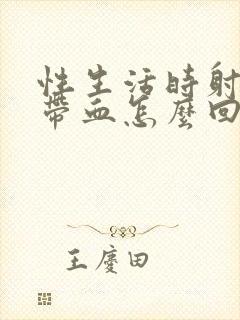 性生活時射
帶血怎麼回
王慶田